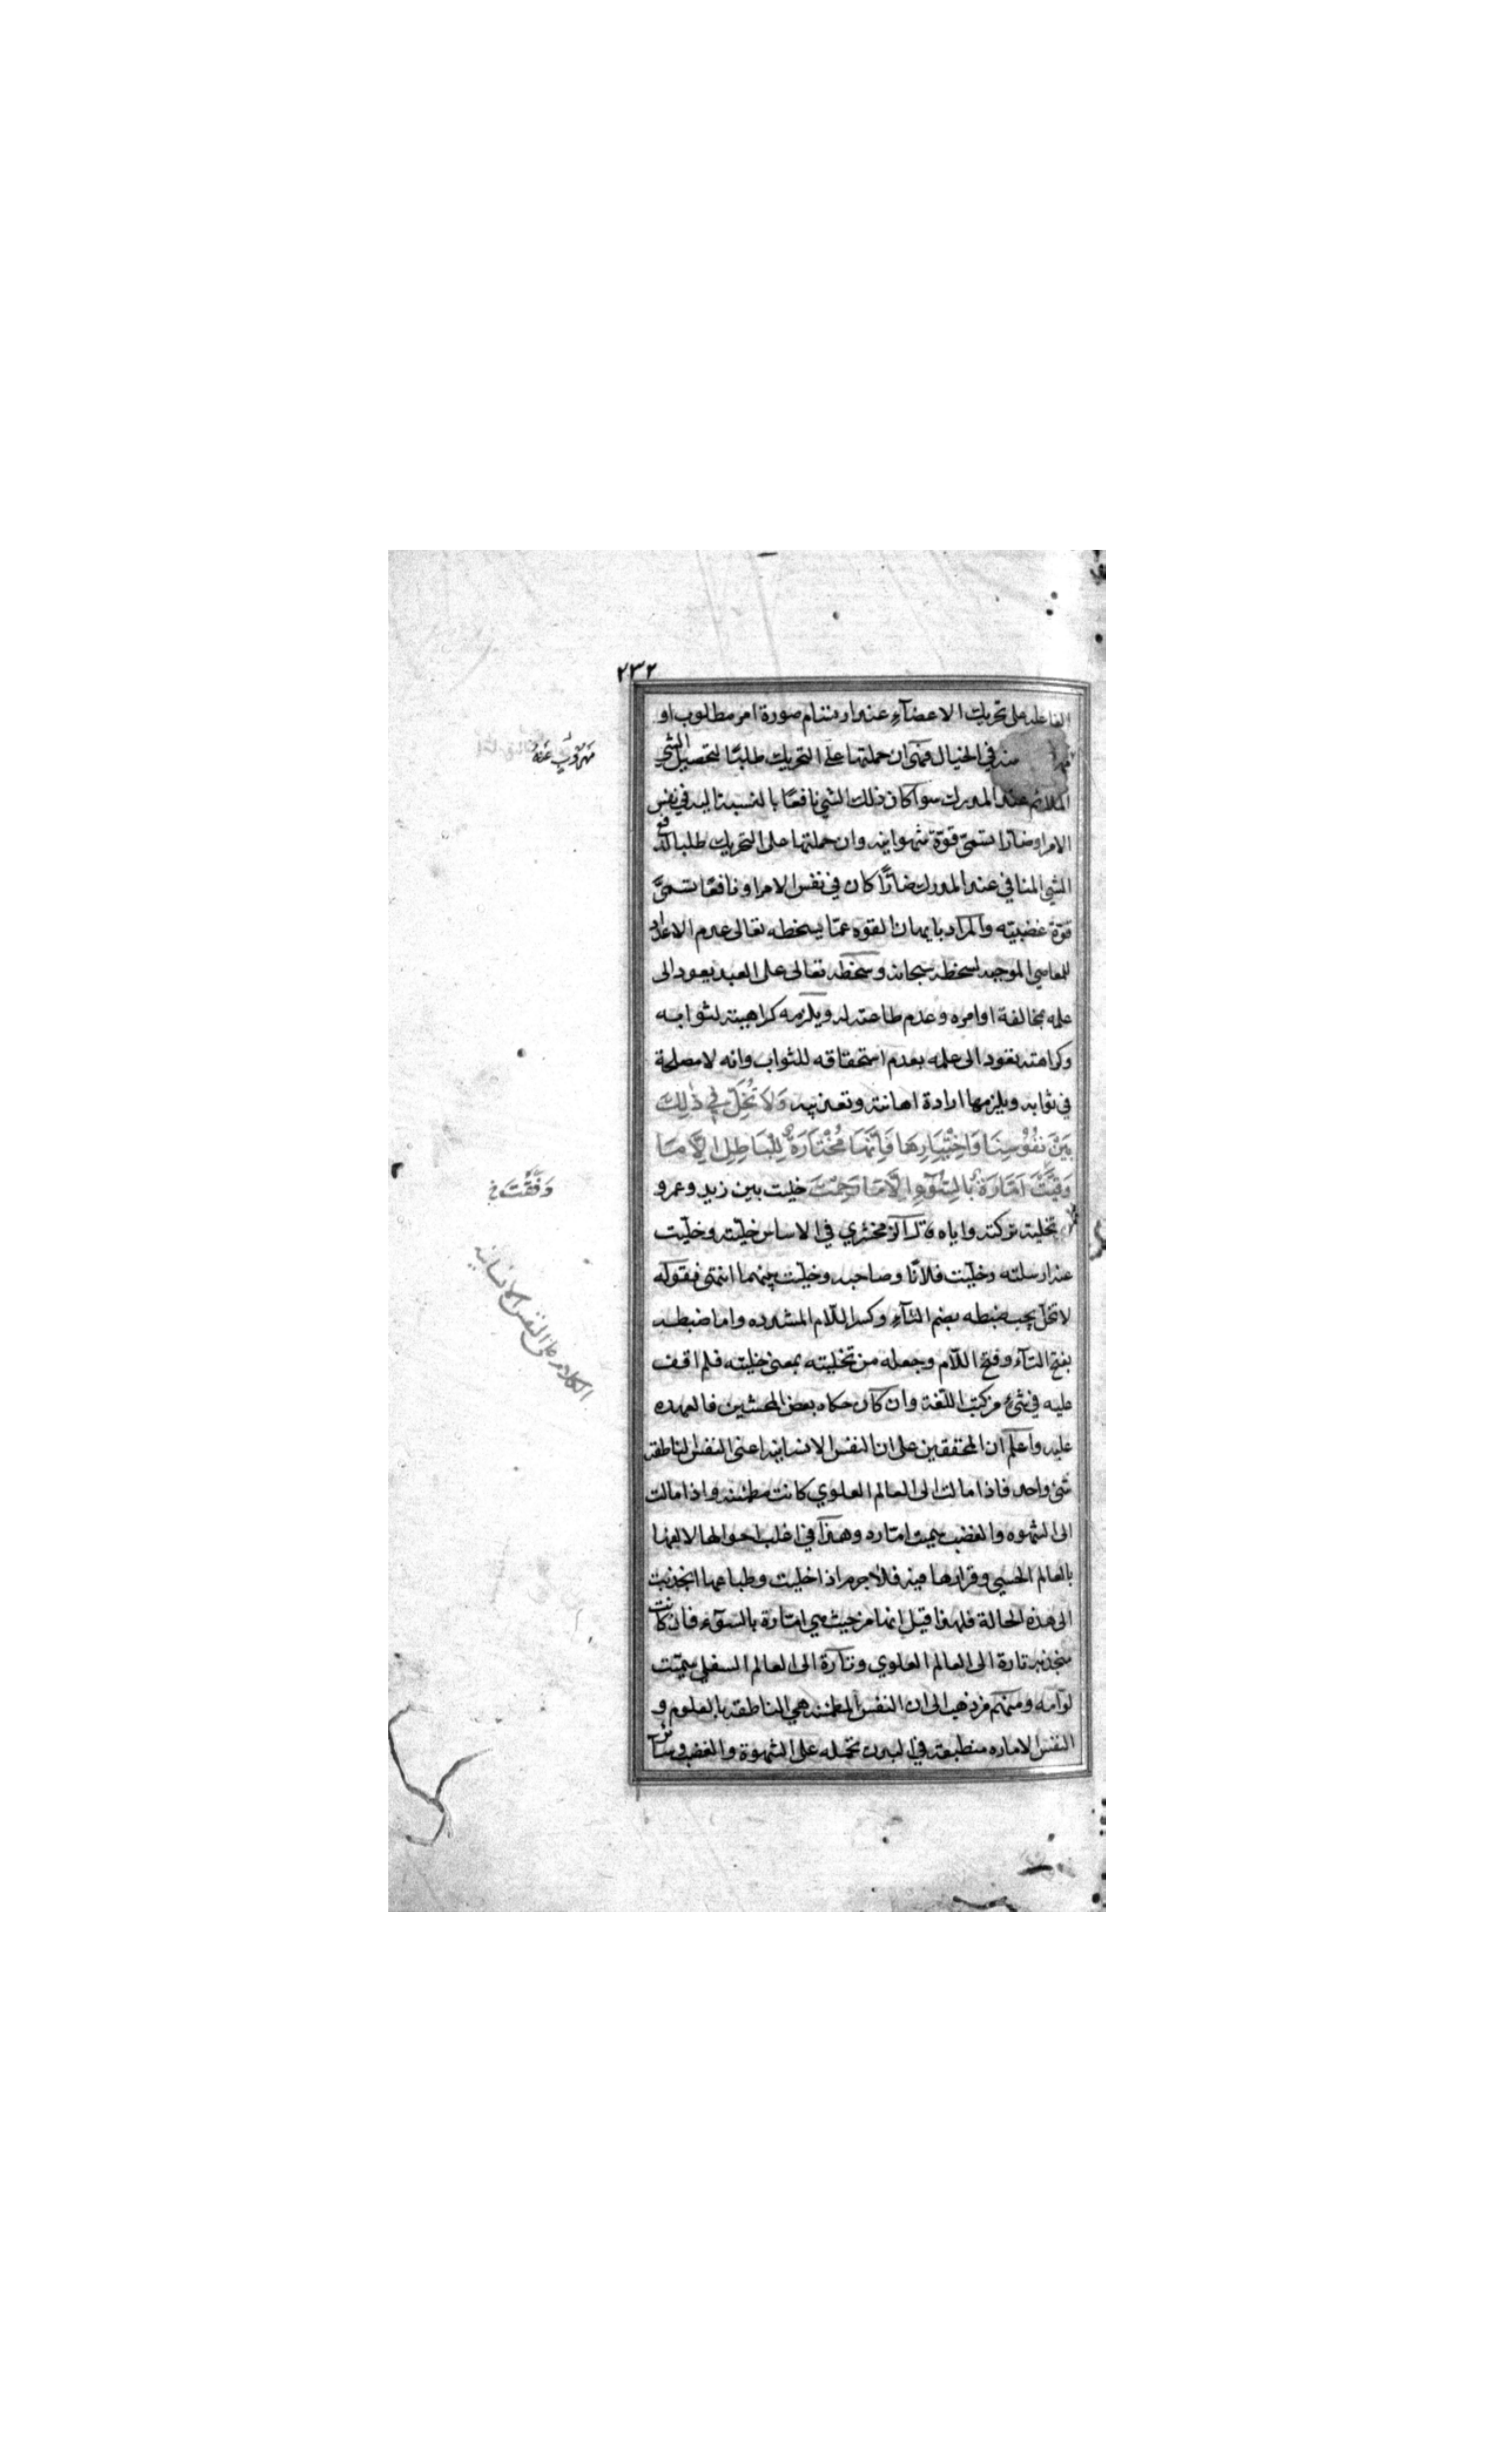 ٢٣٢
الفاعله على تحريك الاعضآء عند ارتسام صورة امر مطلوب او
منه في الخيال فمتى ان حملتها على التحريك طلبًا لتحصيل الشي
الملائم عند المدرك سوآ كان ذلك الشي نافعًا بالنسبة اليه في نفس
الامر او ضارا تسمى قوّة شهوانيه وان حملتها على التحريك طلبا لدفع
الشي المنافي عند المدرك ضارًّا كان في نفس الامر او نافعًا تسمىّ
قوّة غضبيّه والمراد بايهان القوه عمّا يسخطه تعالى عدم الاعداد
للمعاصي الموجبه لسخطه سبحانه وسخطه تعالى على العبد يعود الى
علمه بمخالفة اوامره وعدم طاعته له ويلزمه كراهيته لثوابه
وكراهته يعود الى علمه بعدم استحقاقه للثواب وانه لا مصلحة
في ثوابه ويلزمها ارادة اهانته وتعذيبه وَلَا تُخَلِّ فِي ذٰلِكَ
بَيْنَ نُفُوْسِنَا وَاخْتِيَارِهَا فَاِنَّهَا مُخْتَارَةٌ لِلْبَاطِلِ اِلَّا مَا
وَفَّيْتَ اَمَّارَةٌ بِالسُّوٓءِ اِلَّا مَا رَحِمْتَ خليت بين زيد وعمرو
تخلية تركته واياه قال الزمخشري في الاساس خليّته وخليّت
عنه ارسلته وخليّت فلانًا وصاحبه وخليّت بينهما انتهى فقوله
لا تخلّ يجب ضبطه بضم التآء وكسر اللّام المشدده واما ضبطه
بفتح التآء وفتح اللّام وجعله من تخليته بمعنى خليته فلم اقف
عليه في شيء من كتب اللّغة وان كان حكاه بعض المحشين فالعهده
عليه واعلم ان المحققين على ان النفس الانسانيه اعنى النفس الناطقه
شئ واحد فاذا مالت الى العالم العلوي كانت مطمئنه واذا مالت
الى الشهوه والغضب سميت امّاره وهذا في اغلب احوالها لالفها
بالعالم الحسي وقرارها فيه فلا جرم اذا خليت وطباعها انجذبت
الى هذه الحالة فلهذا قيل انها من حيث هي امّارة بالسوٓء فان كانت
منجذبه تارة الى العالم العلوي وتارة الى العالم السفلي سميّت
لوّامه ومنهم من ذهب الى ان النفس المطمئنه هي الناطقه بالعلوم و
النفس الاماره منطبعة في البدن تحمله على الشهوة والغضب وسائر
مَهْرُوْبٍ عَنْهُ
وَفَّقْتَ خ
الكلام على النفس الانسانيه